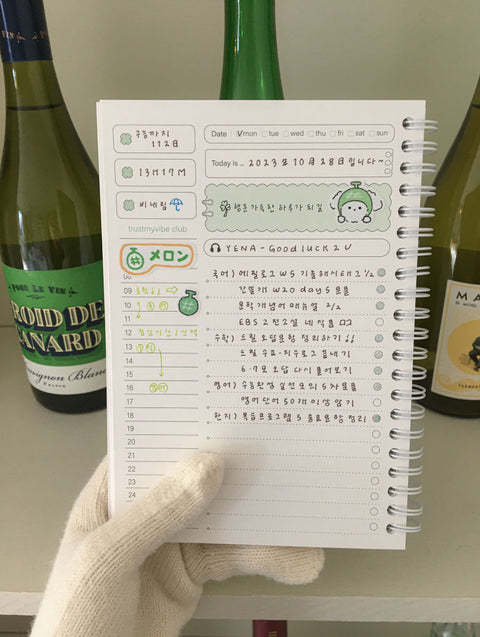 수능까지
112일
13H17M
비내림
trustmyvibe club
Date / ✓mon tue wed thu fri sat sun
Today is ... 2023년 10월 28일입니다~
행운 가득한 하루가 되길
メロン
YENA - Good luck 2 U
08
09
10
11
12 점심시간
13
14
15
16
17
18
19
20
21
22
23
24
국어) 에필로그 W5 기출해시태그 1/2
간쓸개 W20 day5 모듈
문학 개념어 매뉴얼 2/2
EBS 고전소설 네 작품
수학) 5월 오답문항 정리하기!!
5월 수요·지수로그 끝내기
6-7모 오답 다시 풀어보기
영어) 수능완성 실전모의 5차 모듈
영어단어 50개 이상 암기
한지) 복습프로그램 5 종료문항 정리
POUR LE VIN
FROID DE
CANARD
Sauvignon Blanc
MA